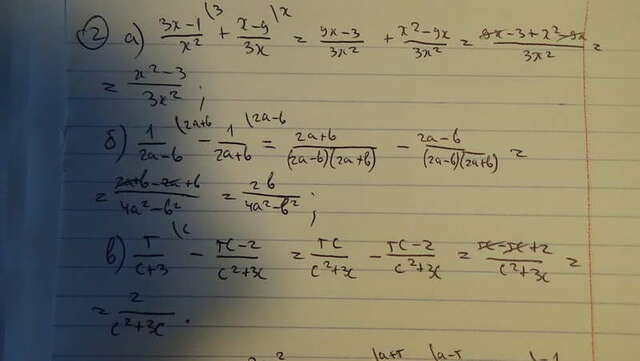 ② а) (3x-1)/x² ⁽³ + (x-9)/3x ⁽ˣ = (9x-3)/3x² + (x²-9x)/3x² = (9x-3+x²-9x)/3x² =
= (x²-3)/3x² ;
б) 1/(2a-b) ⁽²ᵃ⁺ᵇ - 1/(2a+b) ⁽²ᵃ⁻ᵇ = (2a+b)/((2a-b)(2a+b)) - (2a-b)/((2a-b)(2a+b)) =
= (2a+b-2a+b)/(4a²-b²) = 2b/(4a²-b²) ;
в) 5/(c+3) ⁽ᶜ - (5c-2)/(c²+3c) = 5c/(c²+3c) - (5c-2)/(c²+3c) = (5c-5c+2)/(c²+3c) =
= 2/(c²+3c) .